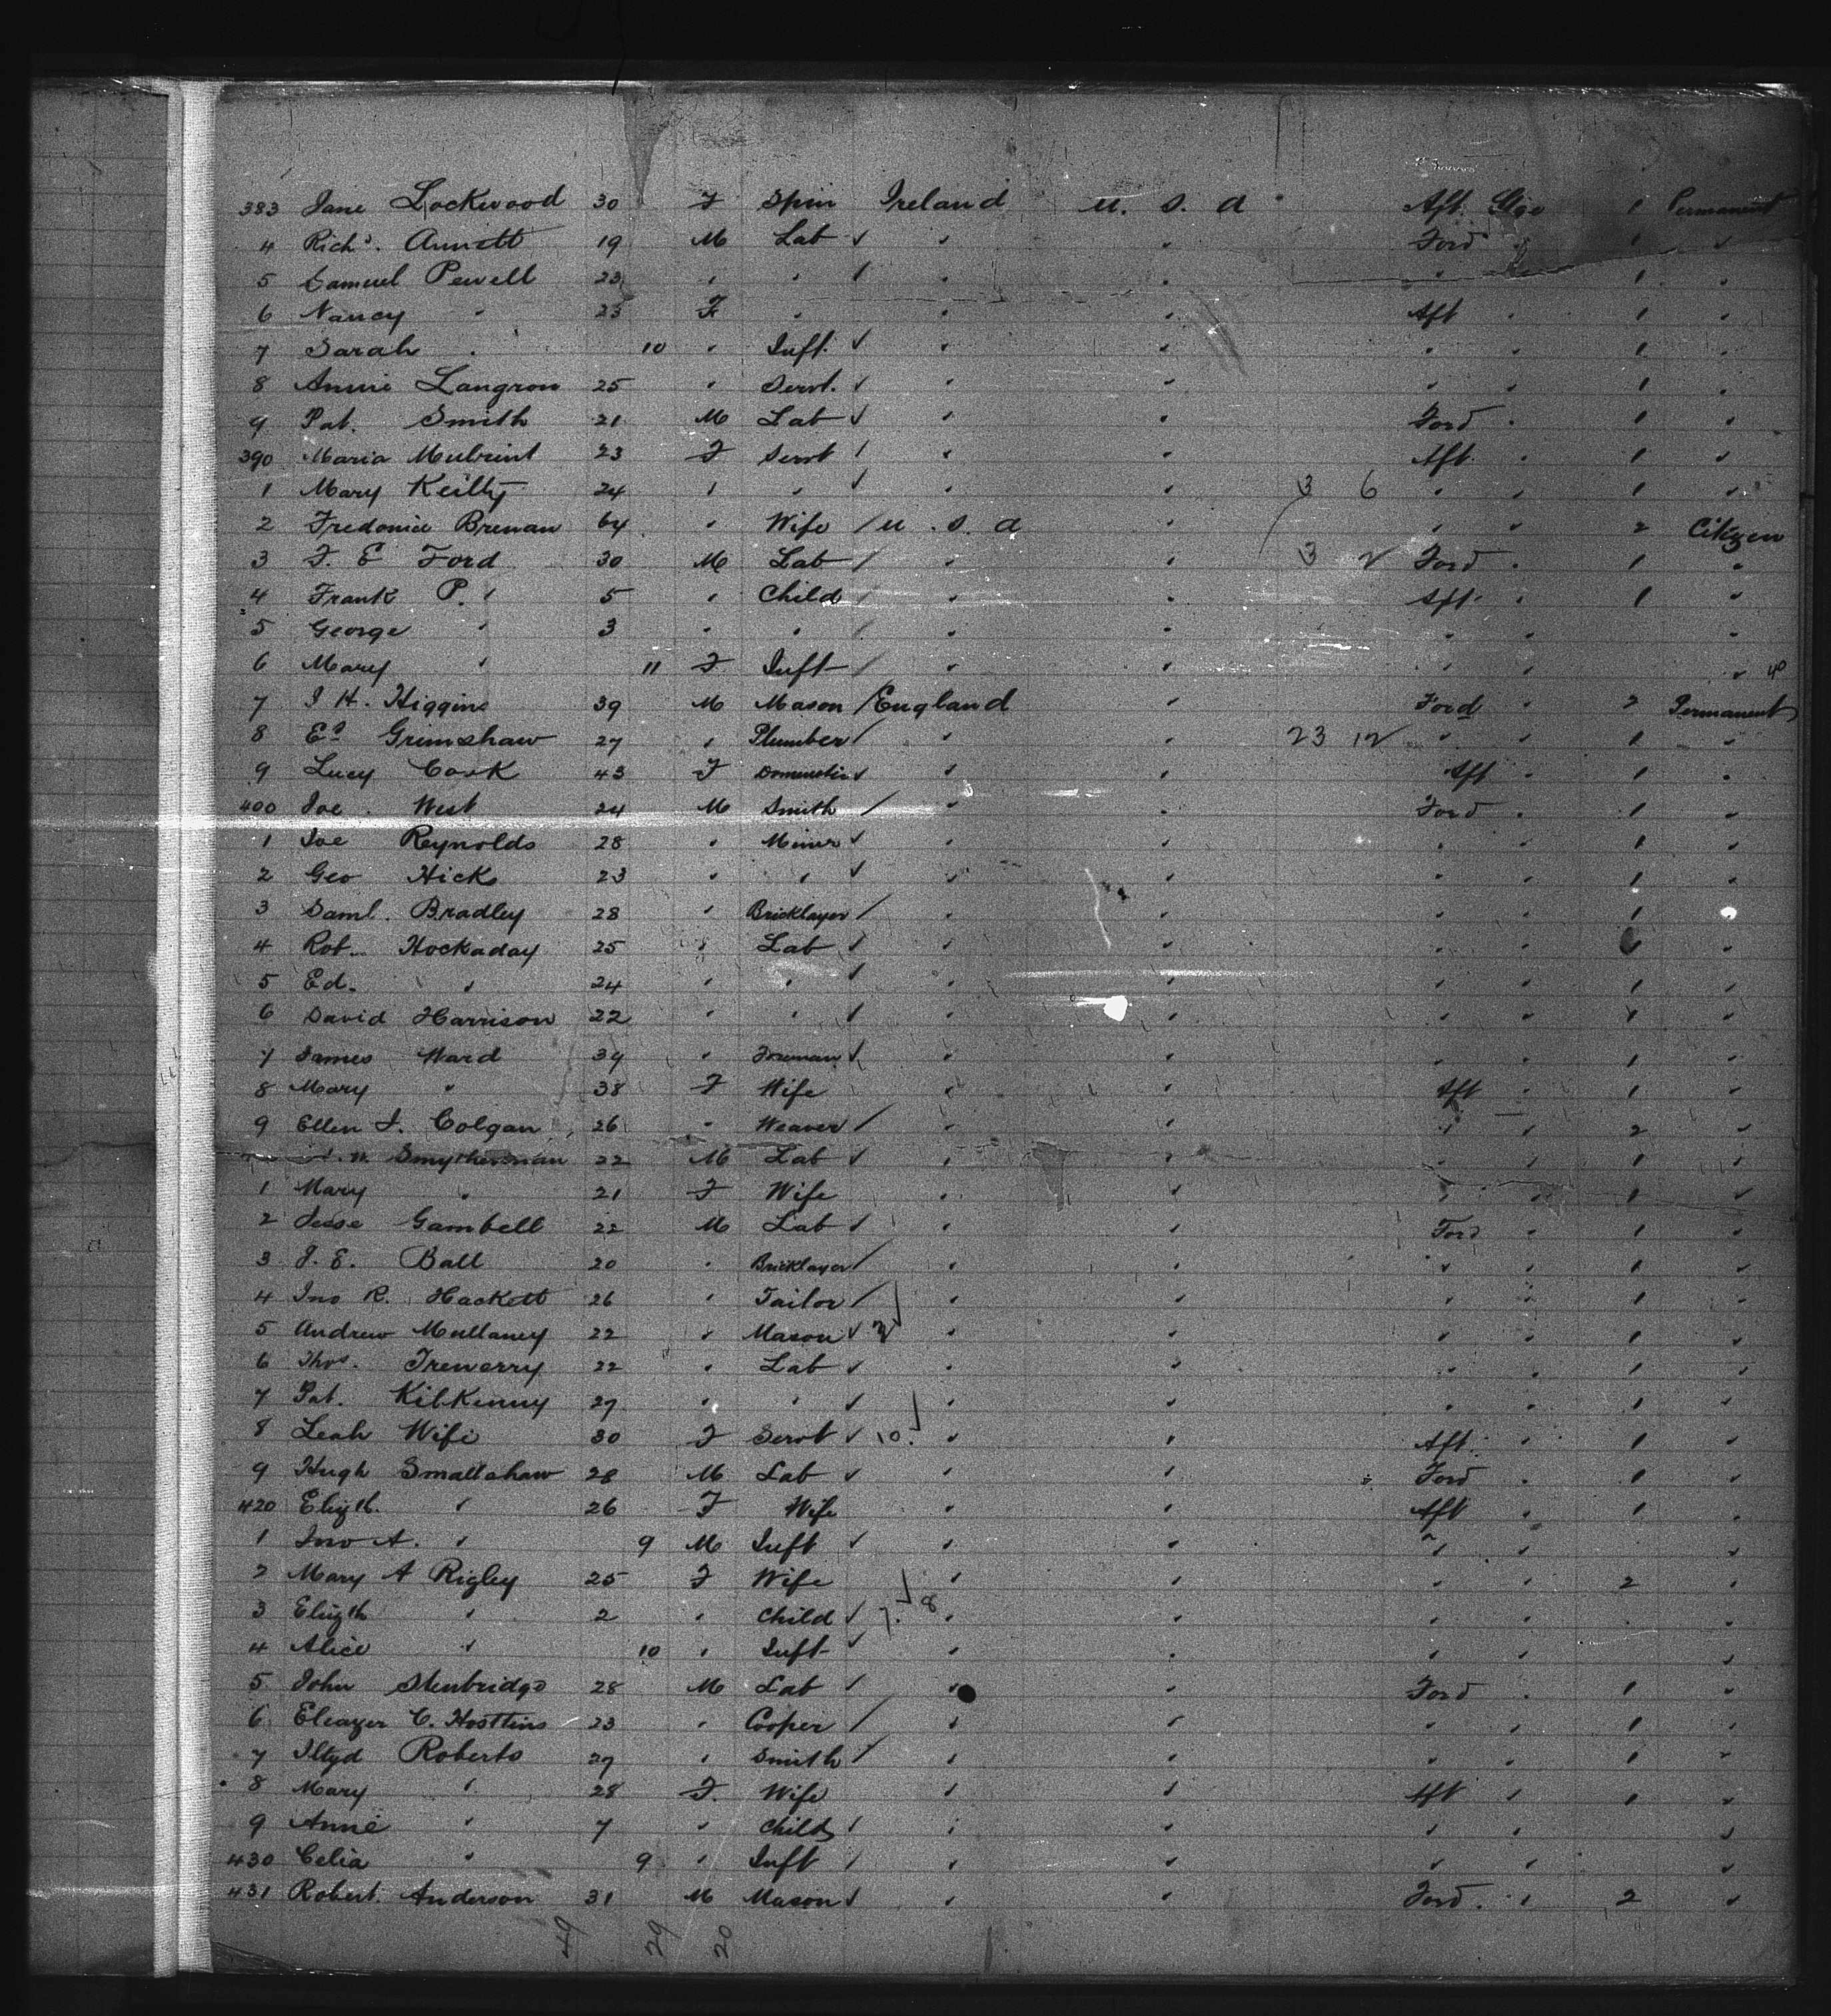 383 Jane Lockwood 30 F Spin Ireland U. S. A Aft Stge 1 Permanent
4 Richd. Annett 19 M Lab ✓ " " Ford " 1 "
5 Samuel Pewell 23 " " / " " " " 1 "
6 Nancy " 23 F " " " Aft " 1 "
7 Sarah " 10 " Inft. ✓ " " " " 1 "
8 Annie Langron 25 " Servt. ✓ " " " " 1 "
9 Pat. Smith 21 M Lab ✓ " " Ford " 1 "
390 Maria 23 F Servt / " " Aft " 1 "
1 Mary Keilty 24 " " ✓ " " 3 6 " " 1 "
2 Fredonia Brenan 64 " Wife / U. S. A " " " 2 Citizen
3 F. E Ford 30 M Lab / " " 3 2 Ford " 1 "
4 Frank P. " 5 " Child / " " Aft " 1 "
5 George " 3 " " / " " " " "
6 Mary " 11 F Inft / " " " " "
7 J H. Higgins 39 M Mason / England " Ford " 2 Permanent
8 Ed Grimshaw 27 " Plumber / " " 23 12 " " 1 "
9 Lucy Cork 43 F Domestic ✓ " " Aft " 1 "
400 Joe West 24 M Smith / " " Ford " 1 "
1 Joe Reynolds 28 " Miner ✓ " " " " 1 "
2 Geo Hick 23 " " ✓ " " " " 1 "
3 Saml. Bradley 28 " Bricklayer / " " " " 1
4 Rob. Hockaday 25 " Lab ✓ " " " " "
5 Ed. " 24 " " ✓ " " " " 1 "
6 David Harrison 22 " " / " " " " 1 "
7 James Ward 39 " Foreman ✓ " " " " 1 "
8 Mary " 38 F Wife " " Aft " 1 "
9 Ellen J. Colgan 26 " Weaver / " " " " 2 "
Smytherman 22 M Lab ✓ " " " " 1 "
1 Mary " 21 F Wife " " " " 1 "
2 Jesse Gambell 22 M Lab ✓ " " Ford " 1 "
3 J. E. Ball 20 " Bricklayer / " " " " 1 "
4 Jno R. Hackett 26 " Tailor / " " " " 1 "
5 Andrew Mullaney 22 " Mason ✓ " " " " 1 "
6 Thos. Trewerry 22 " Lab ✓ " " " " 1 "
7 Pat. Kilkenny 27 " " ✓ " " " " 1 "
8 Leah Wife 30 F Servt ✓ 10 " " Aft " 1 "
9 Hugh Smallshaw 28 M Lab ✓ " " Ford " 1 "
420 Elizth. " 26 F Wife " " Aft " 1 "
1 Jno A. " 9 M Inft ✓ " " " " "
2 Mary A Rigley 25 F Wife " " " " 2 "
3 Elizth " 2 " Child ✓ 7. 8 " " " " "
4 Alice " 10 " Inft ✓ " " " " "
5 John Stenbridge 28 M Lab / " " Ford " 1 "
6 Eleazer C. Hosttins 23 " Cooper / " " " " 1 "
7 Illtyd Roberts 27 " Smith / " " " " 1 "
8 Mary " 28 F. Wife " " Aft " 1 "
9 Anne " 7 " Child / " " " " "
430 Celia " 9 " Inft / " " " " "
431 Robert. Anderson 31 M Mason ✓ " " Ford. " 2 "
49 29 20